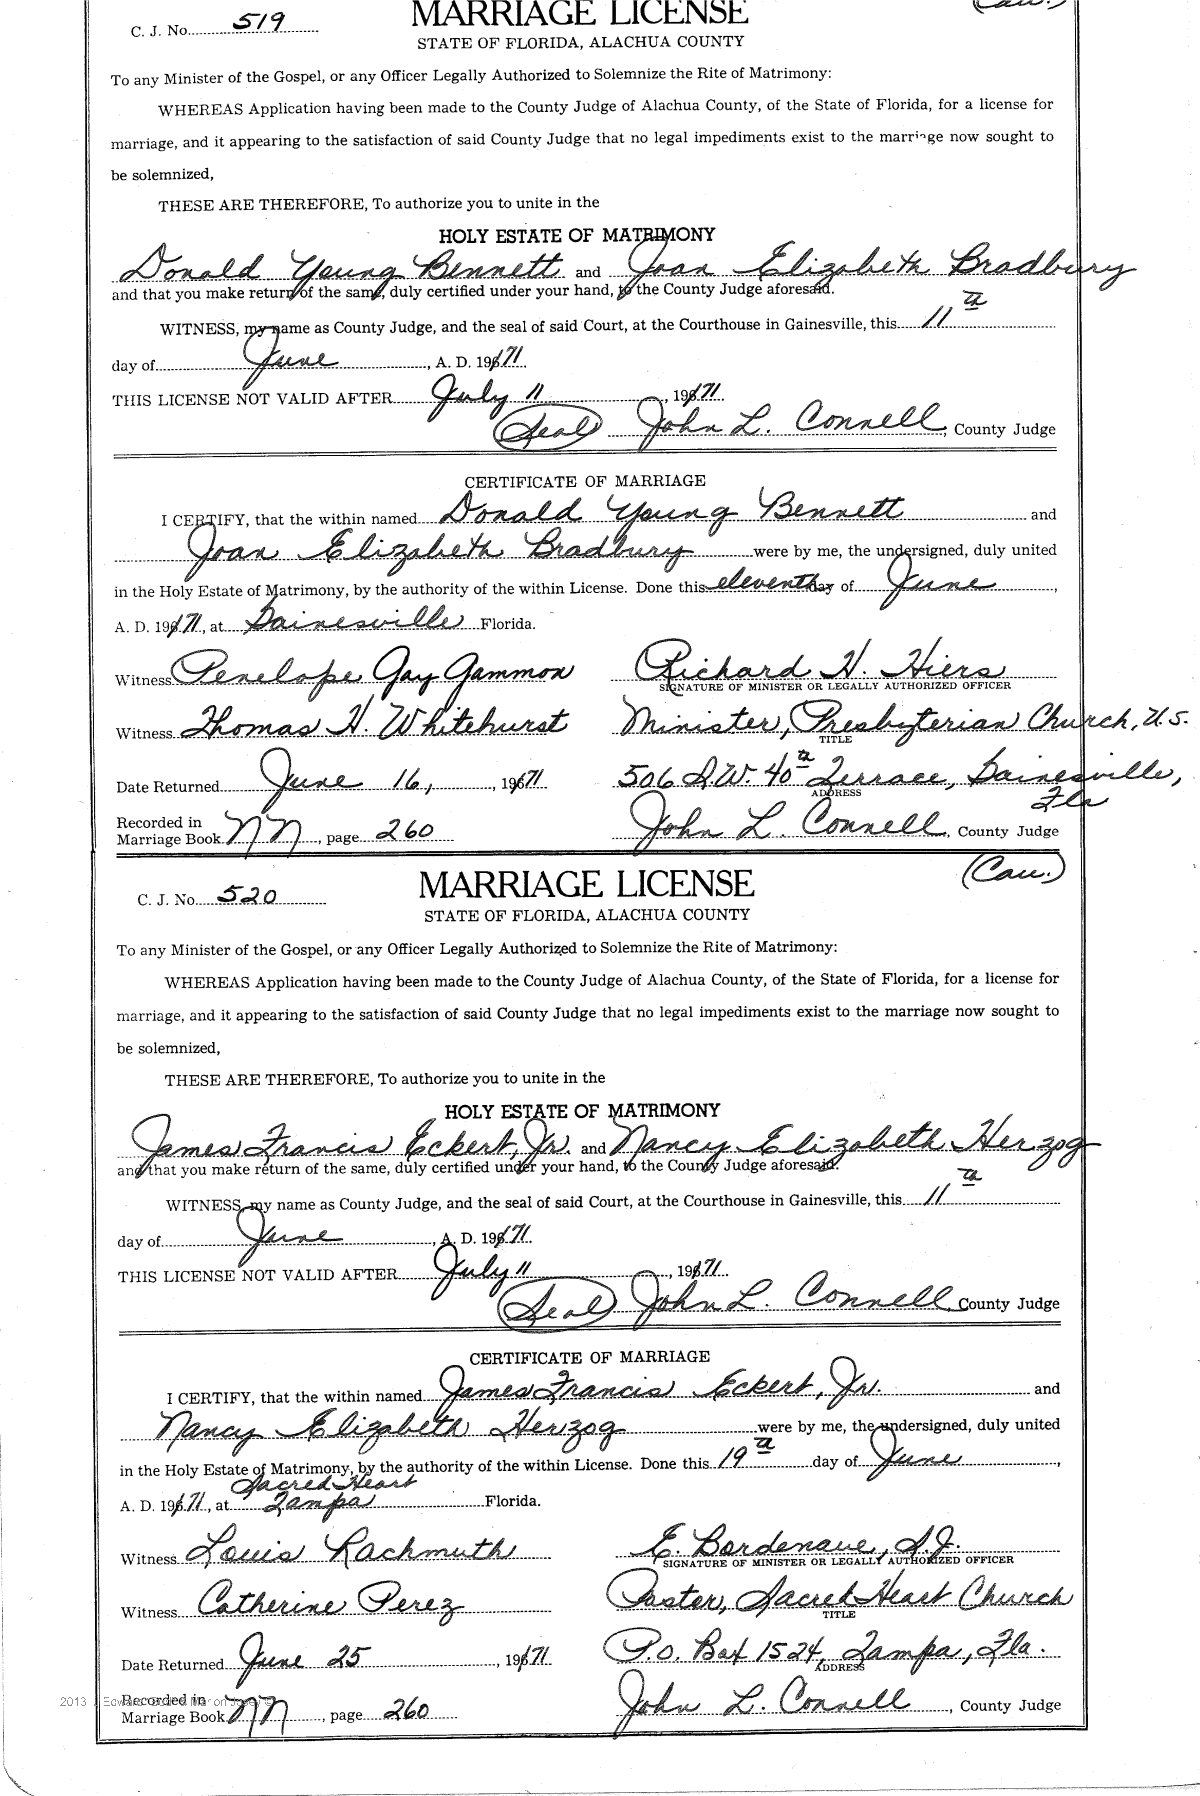 C. J. No. 519
MARRIAGE LICENSE
(Cau.)
STATE OF FLORIDA, ALACHUA COUNTY
To any Minister of the Gospel, or any Officer Legally Authorized to Solemnize the Rite of Matrimony:
WHEREAS Application having been made to the County Judge of Alachua County, of the State of Florida, for a license for
marriage, and it appearing to the satisfaction of said County Judge that no legal impediments exist to the marriage now sought to
be solemnized,
THESE ARE THEREFORE, To authorize you to unite in the
HOLY ESTATE OF MATRIMONY
Donald Young Bennett and Joan Elizabeth Bradbury
and that you make return of the same, duly certified under your hand, to the County Judge aforesaid.
WITNESS, my name as County Judge, and the seal of said Court, at the Courthouse in Gainesville, this 11th
day of June, A. D. 1971.
THIS LICENSE NOT VALID AFTER July 11, 1971.
(Seal) John L. Connell, County Judge
CERTIFICATE OF MARRIAGE
I CERTIFY, that the within named Donald Young Bennett and
Joan Elizabeth Bradbury were by me, the undersigned, duly united
in the Holy Estate of Matrimony, by the authority of the within License. Done this eleventh day of June,
A. D. 1971, at Gainesville Florida.
Witness Penelope Gay Gammon Richard H. Hiers
SIGNATURE OF MINISTER OR LEGALLY AUTHORIZED OFFICER
Witness Thomas H. Whitehurst Minister, Presbyterian Church, U.S.
TITLE
Date Returned June 16, , 1971 506 S.W. 40th Terrace, Gainesville,
ADDRESS Fla
Recorded in
Marriage Book NN, page 260 John L. Connell, County Judge
C. J. No. 520
MARRIAGE LICENSE
(Cau.)
STATE OF FLORIDA, ALACHUA COUNTY
To any Minister of the Gospel, or any Officer Legally Authorized to Solemnize the Rite of Matrimony:
WHEREAS Application having been made to the County Judge of Alachua County, of the State of Florida, for a license for
marriage, and it appearing to the satisfaction of said County Judge that no legal impediments exist to the marriage now sought to
be solemnized,
THESE ARE THEREFORE, To authorize you to unite in the
HOLY ESTATE OF MATRIMONY
James Francis Eckert, Jr. and Nancy Elizabeth Herzog
and that you make return of the same, duly certified under your hand, to the County Judge aforesaid.
WITNESS, my name as County Judge, and the seal of said Court, at the Courthouse in Gainesville, this 11th
day of June, A. D. 1971.
THIS LICENSE NOT VALID AFTER July 11, 1971.
(Seal) John L. Connell County Judge
CERTIFICATE OF MARRIAGE
I CERTIFY, that the within named James Francis Eckert, Jr. and
Nancy Elizabeth Herzog were by me, the undersigned, duly united
in the Holy Estate of Matrimony, by the authority of the within License. Done this 19th day of June,
Sacred Heart
A. D. 1971, at Tampa Florida.
Witness Louis Rachmuth E. Bordenave, S.J.
SIGNATURE OF MINISTER OR LEGALLY AUTHORIZED OFFICER
Witness Catherine Perez Pastor, Sacred Heart Church
TITLE
Date Returned June 25, 1971 P.O. Box 1524, Tampa, Fla.
ADDRESS
Recorded in
Marriage Book NN, page 260 John L. Connell, County Judge
2013